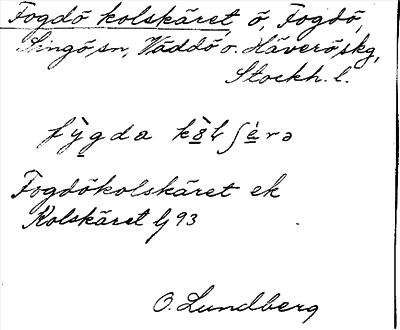 Fogdö kolskäret, ö, Fogdö,
Singö sn, Väddö o. Häverö skg,
Stockh. l.
fỳgda kò̱lʃæ̀rə
Fogdökolskäret ek
Kolskäret lj 93
O. Lundberg